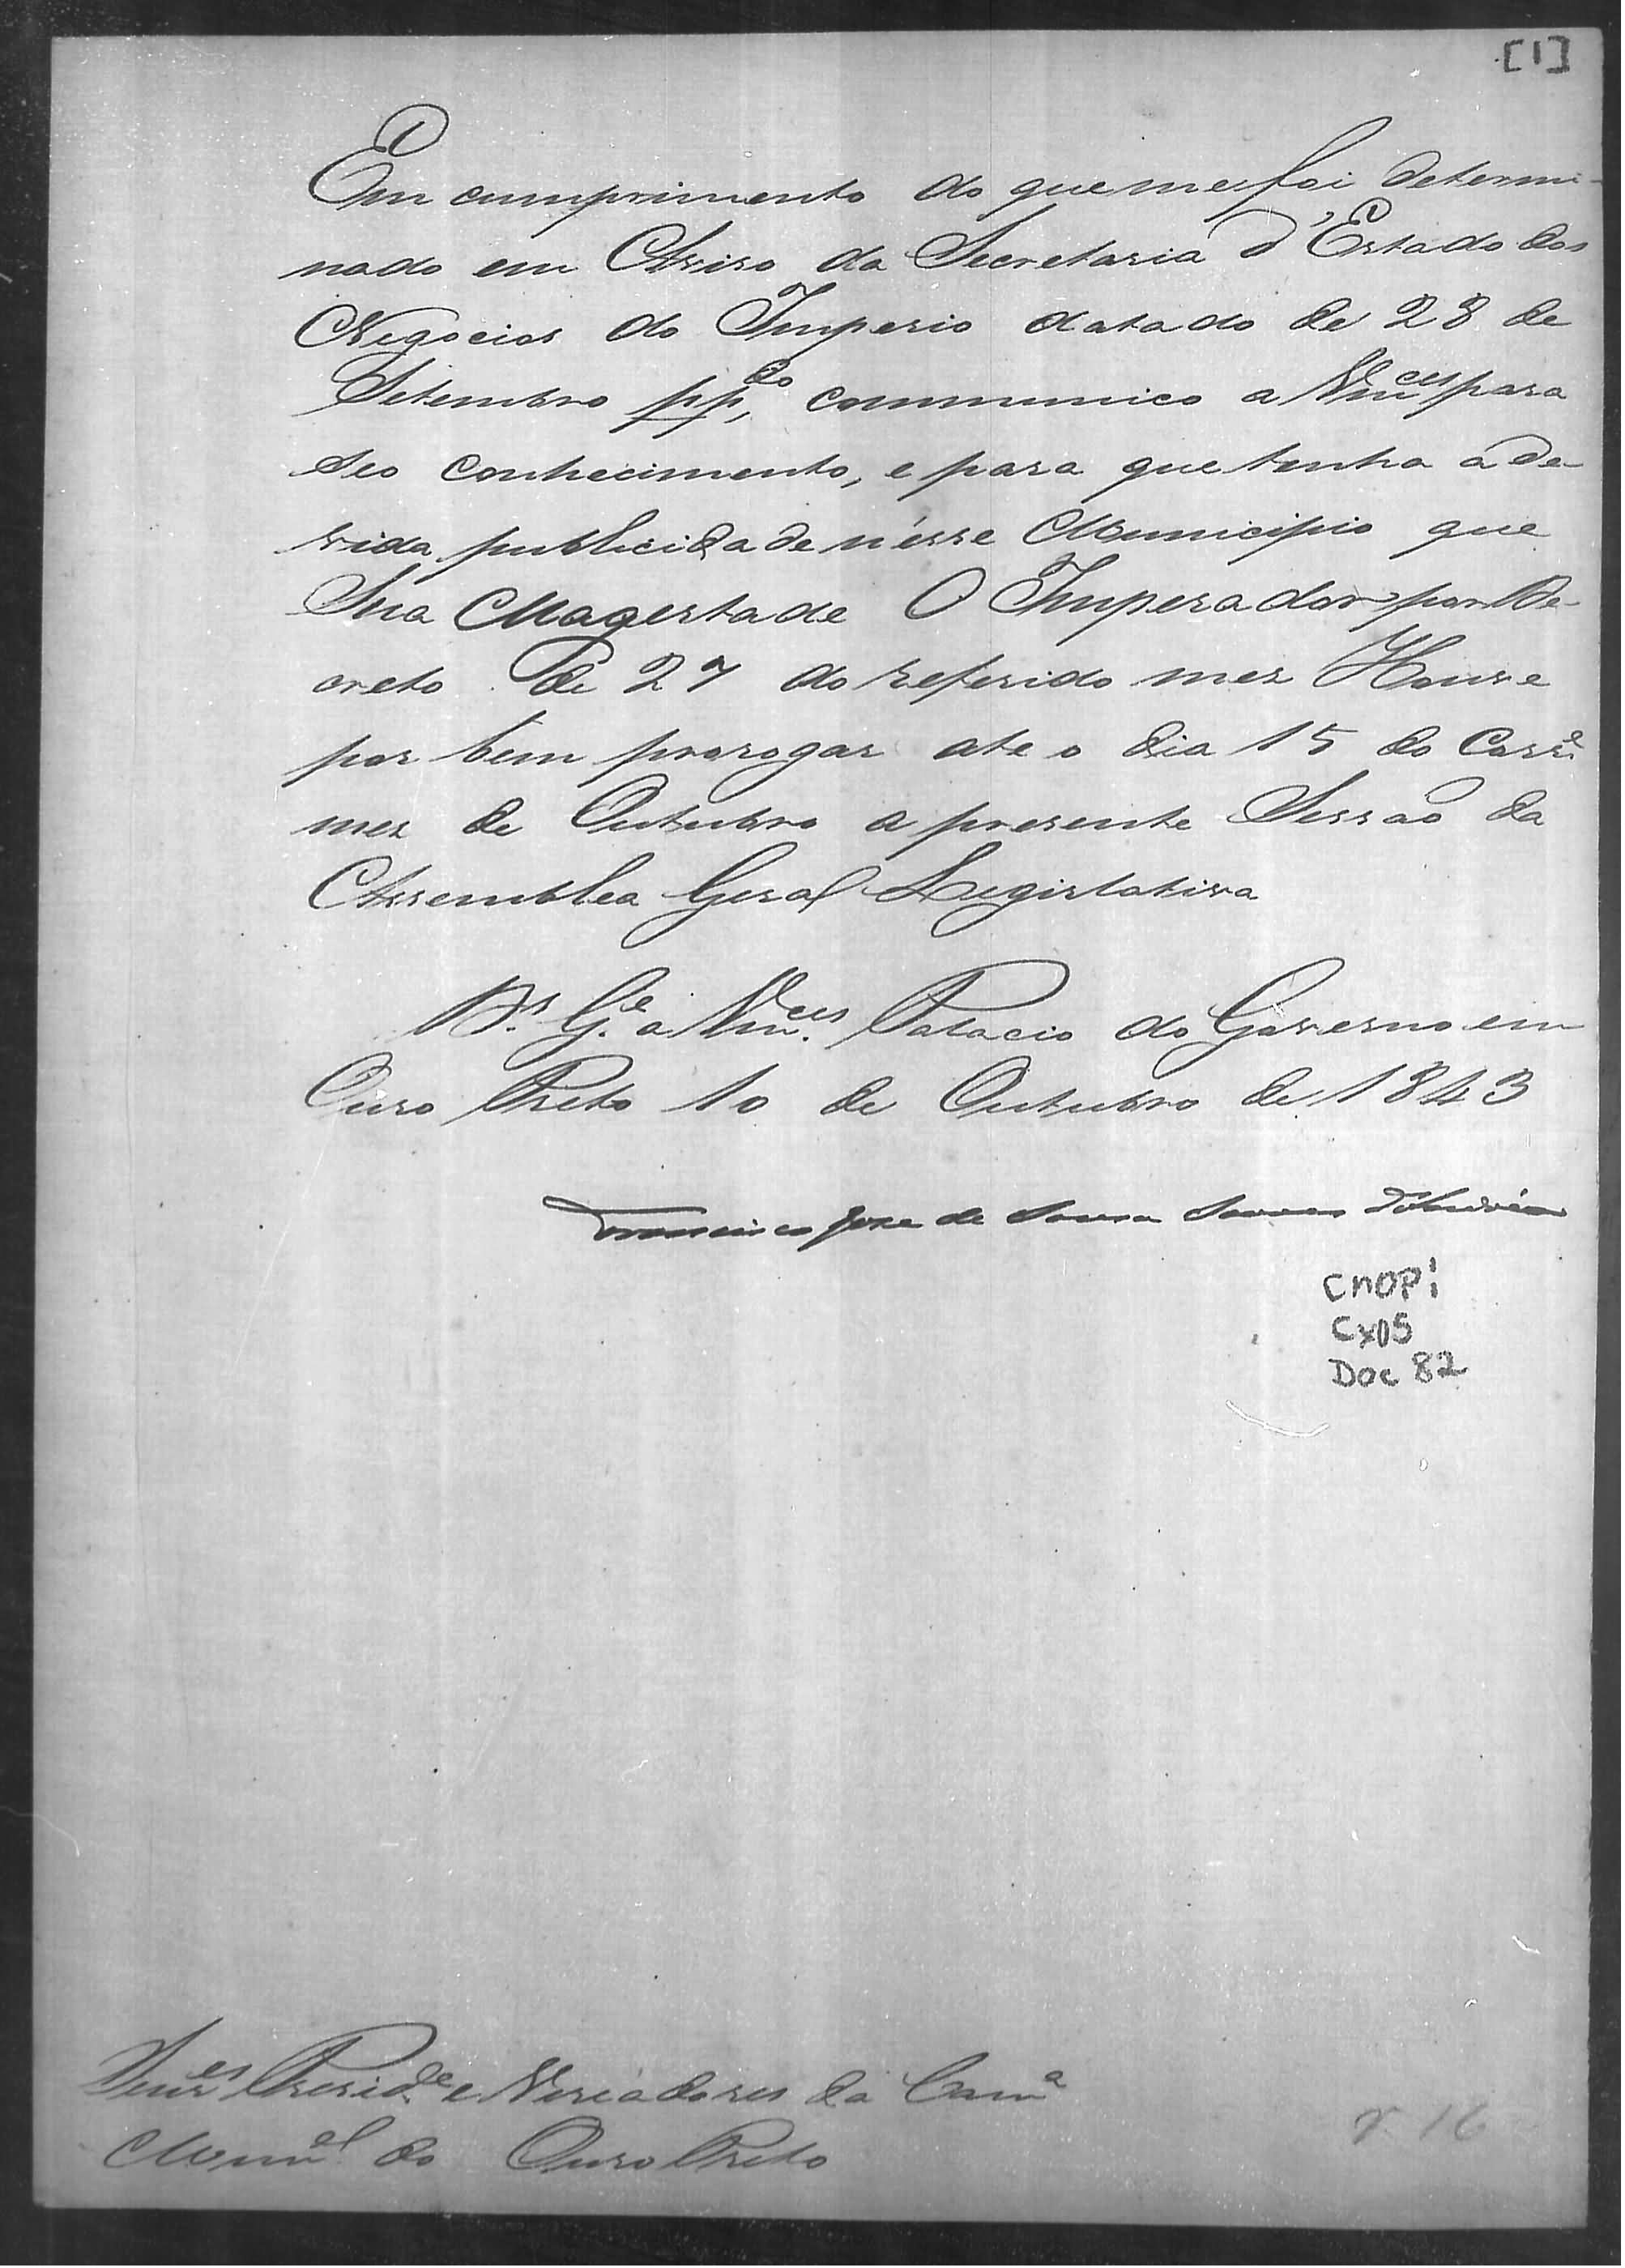 [1]
Em cumprimento do que me foi determi-
nado em Aviso da Secretaria d'Estado dos
Negocios do Imperio datado de 28 de
Setembro pp.do, communico a Vmces para
seo conhecimento, e para que tenha a de-
vida publicidade n'ésse Municipio que
Sua Magestade O Imperador por De-
creto de 27 do referido mez Houve
por bem prorogar ate o dia 15 do Corr.e
mez de Outubro a presente Sessão da
Assemblea Geral Legislativa
D.s G.e a Vm.ces Palacio do Governo em
Ouro Preto 10 de Outubro de 1843
Francisco Jose de Souza Soares d'Andréa
CMOP:
Cx05
Doc 82
Senr.es Presid.e e Vereadores da Cam.a
Mun.al do Ouro Preto